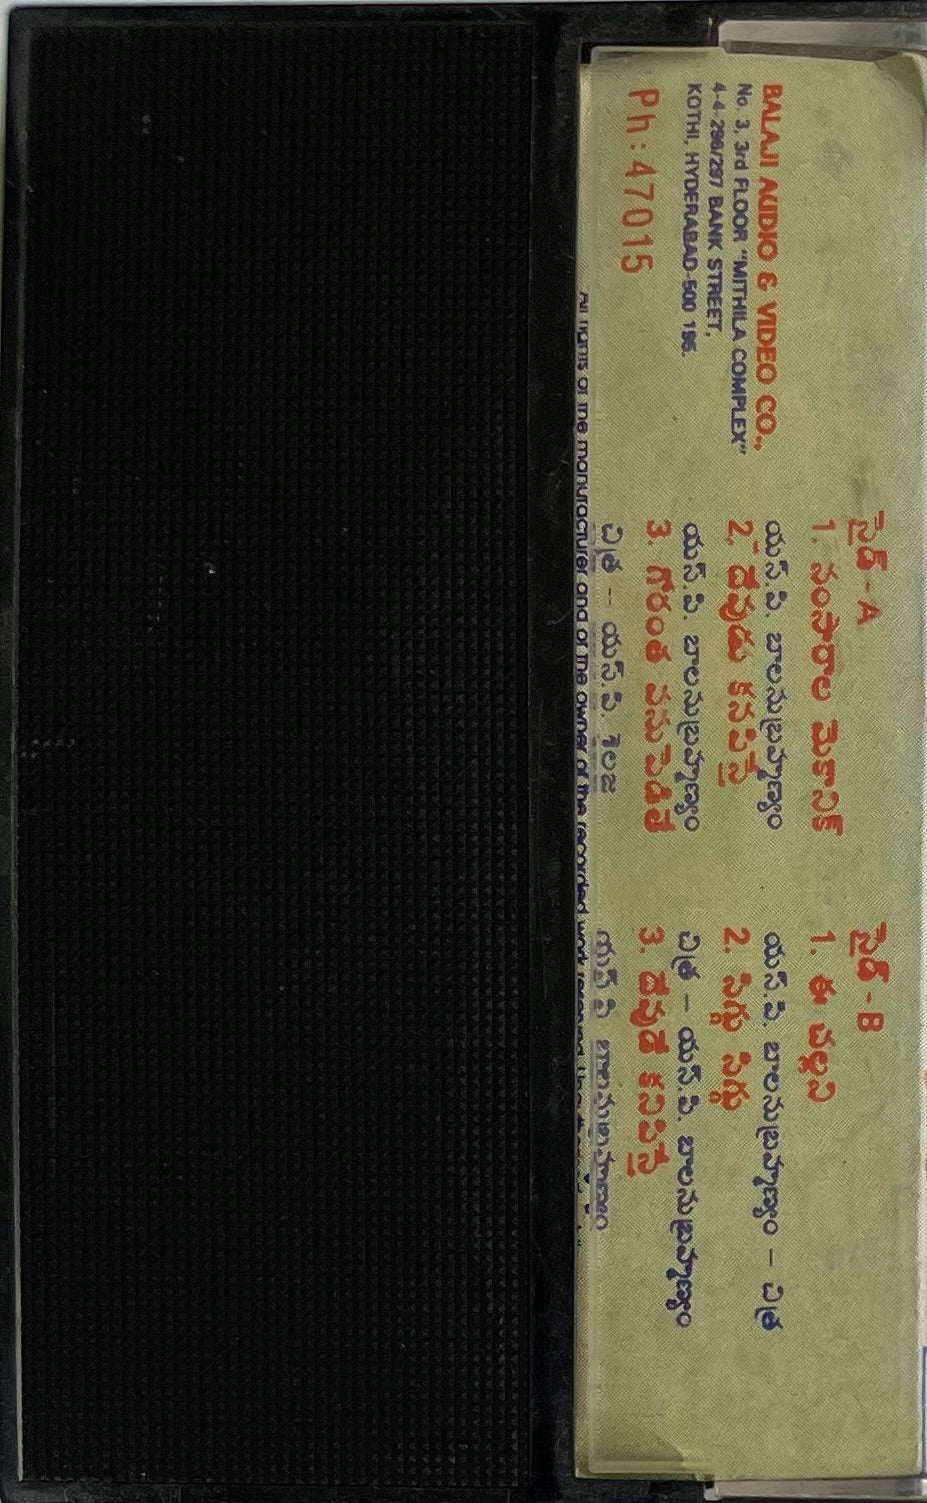 BALAJI AUDIO & VIDEO CO.,
No. 3, 3rd FLOOR "MITHILA COMPLEX"
4-4-296/297 BANK STREET,
KOTHI, HYDERABAD-500 195.
Ph:47015
సైడ్-A
1. సంసారాల మెకానిక్
యస్.పి. బాలసుబ్రహ్మణ్యం
2. దేవుడు కనిపిస్తే
యస్.పి. బాలసుబ్రహ్మణ్యం
3. గోరంత పసుపెడితే
చిత్ర – యస్.పి. శైలజ
సైడ్-B
1. ఈ పల్లవి
యస్.పి. బాలసుబ్రహ్మణ్యం – చిత్ర
2. సిగ్గు సిగ్గు
చిత్ర – యస్.పి. బాలసుబ్రహ్మణ్యం
3. దేవుడే కనిపిస్తే
యస్.పి. బాలసుబ్రహ్మణ్యం
All rights of the manufacturer and of the owner of the recorded work reserved